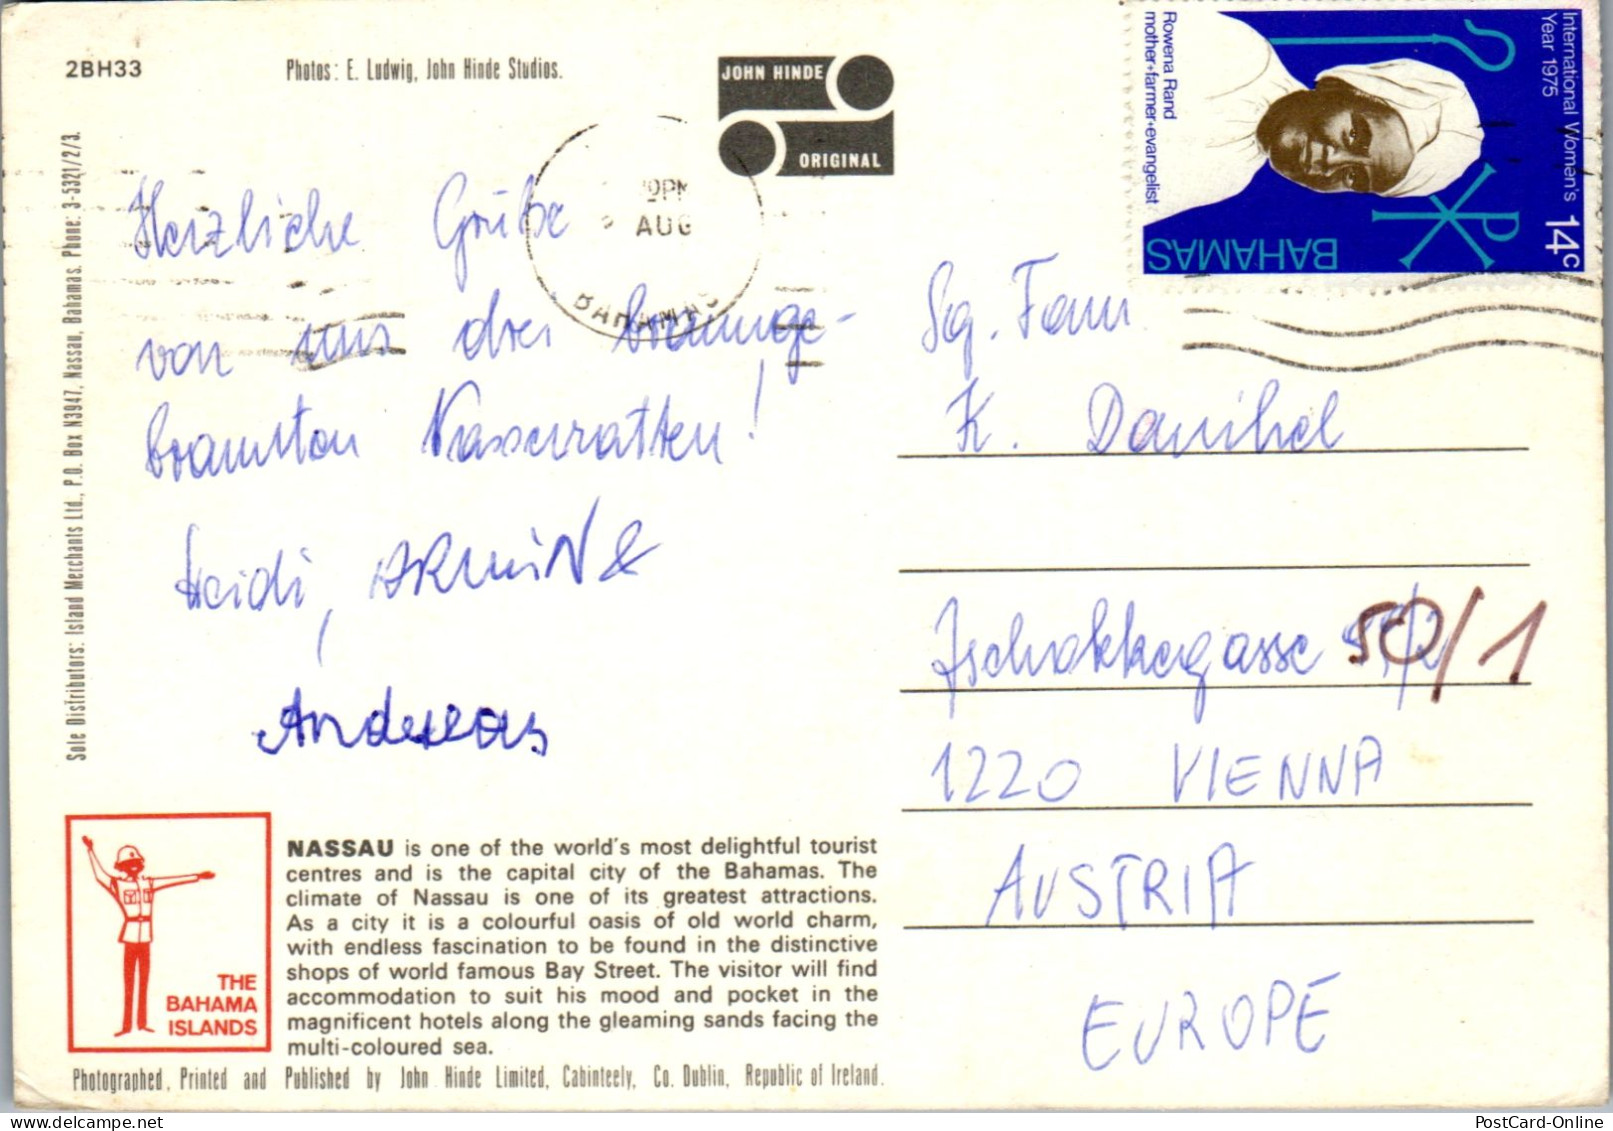 2BH33
Photos: E. Ludwig, John Hinde Studios.
JOHN HINDE
ORIGINAL
International Women's
Year 1975
14c
BAHAMAS
Rowena Rand
mother+farmer+evangelist
PM
AUG
BAHAMAS
Herzliche Grüße
von uns drei braunge-
brannten Wasserratten!
Heidi, ARMIN &
Andreas
Sg. Fam.
K. Danihel
Zschokkegasse 50/1
1220 VIENNA
AUSTRIA
EUROPE
Sole Distributors: Island Merchants Ltd., P.O. Box N3947, Nassau, Bahamas. Phone: 3-5321/2/3.
THE
BAHAMA
ISLANDS
NASSAU is one of the world's most delightful tourist
centres and is the capital city of the Bahamas. The
climate of Nassau is one of its greatest attractions.
As a city it is a colourful oasis of old world charm,
with endless fascination to be found in the distinctive
shops of world famous Bay Street. The visitor will find
accommodation to suit his mood and pocket in the
magnificent hotels along the gleaming sands facing the
multi-coloured sea.
Photographed, Printed and Published by John Hinde Limited, Cabinteely, Co. Dublin, Republic of Ireland.
PostCard-Online